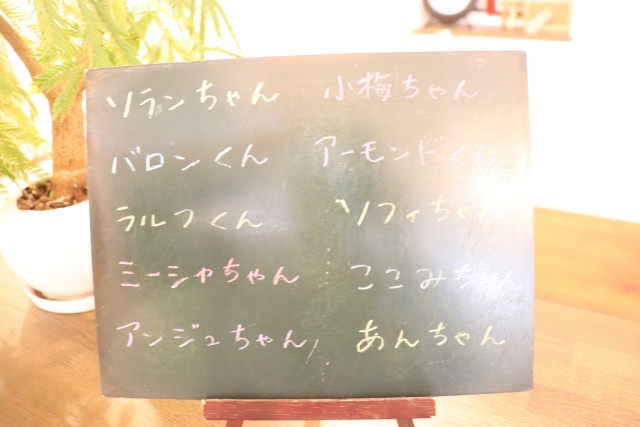 ソランちゃん 小梅ちゃん
バロンくん アーモンドくん
ラルフくん ソフィちゃん
ミーシャちゃん ここみちゃん
アンジュちゃん あんちゃん